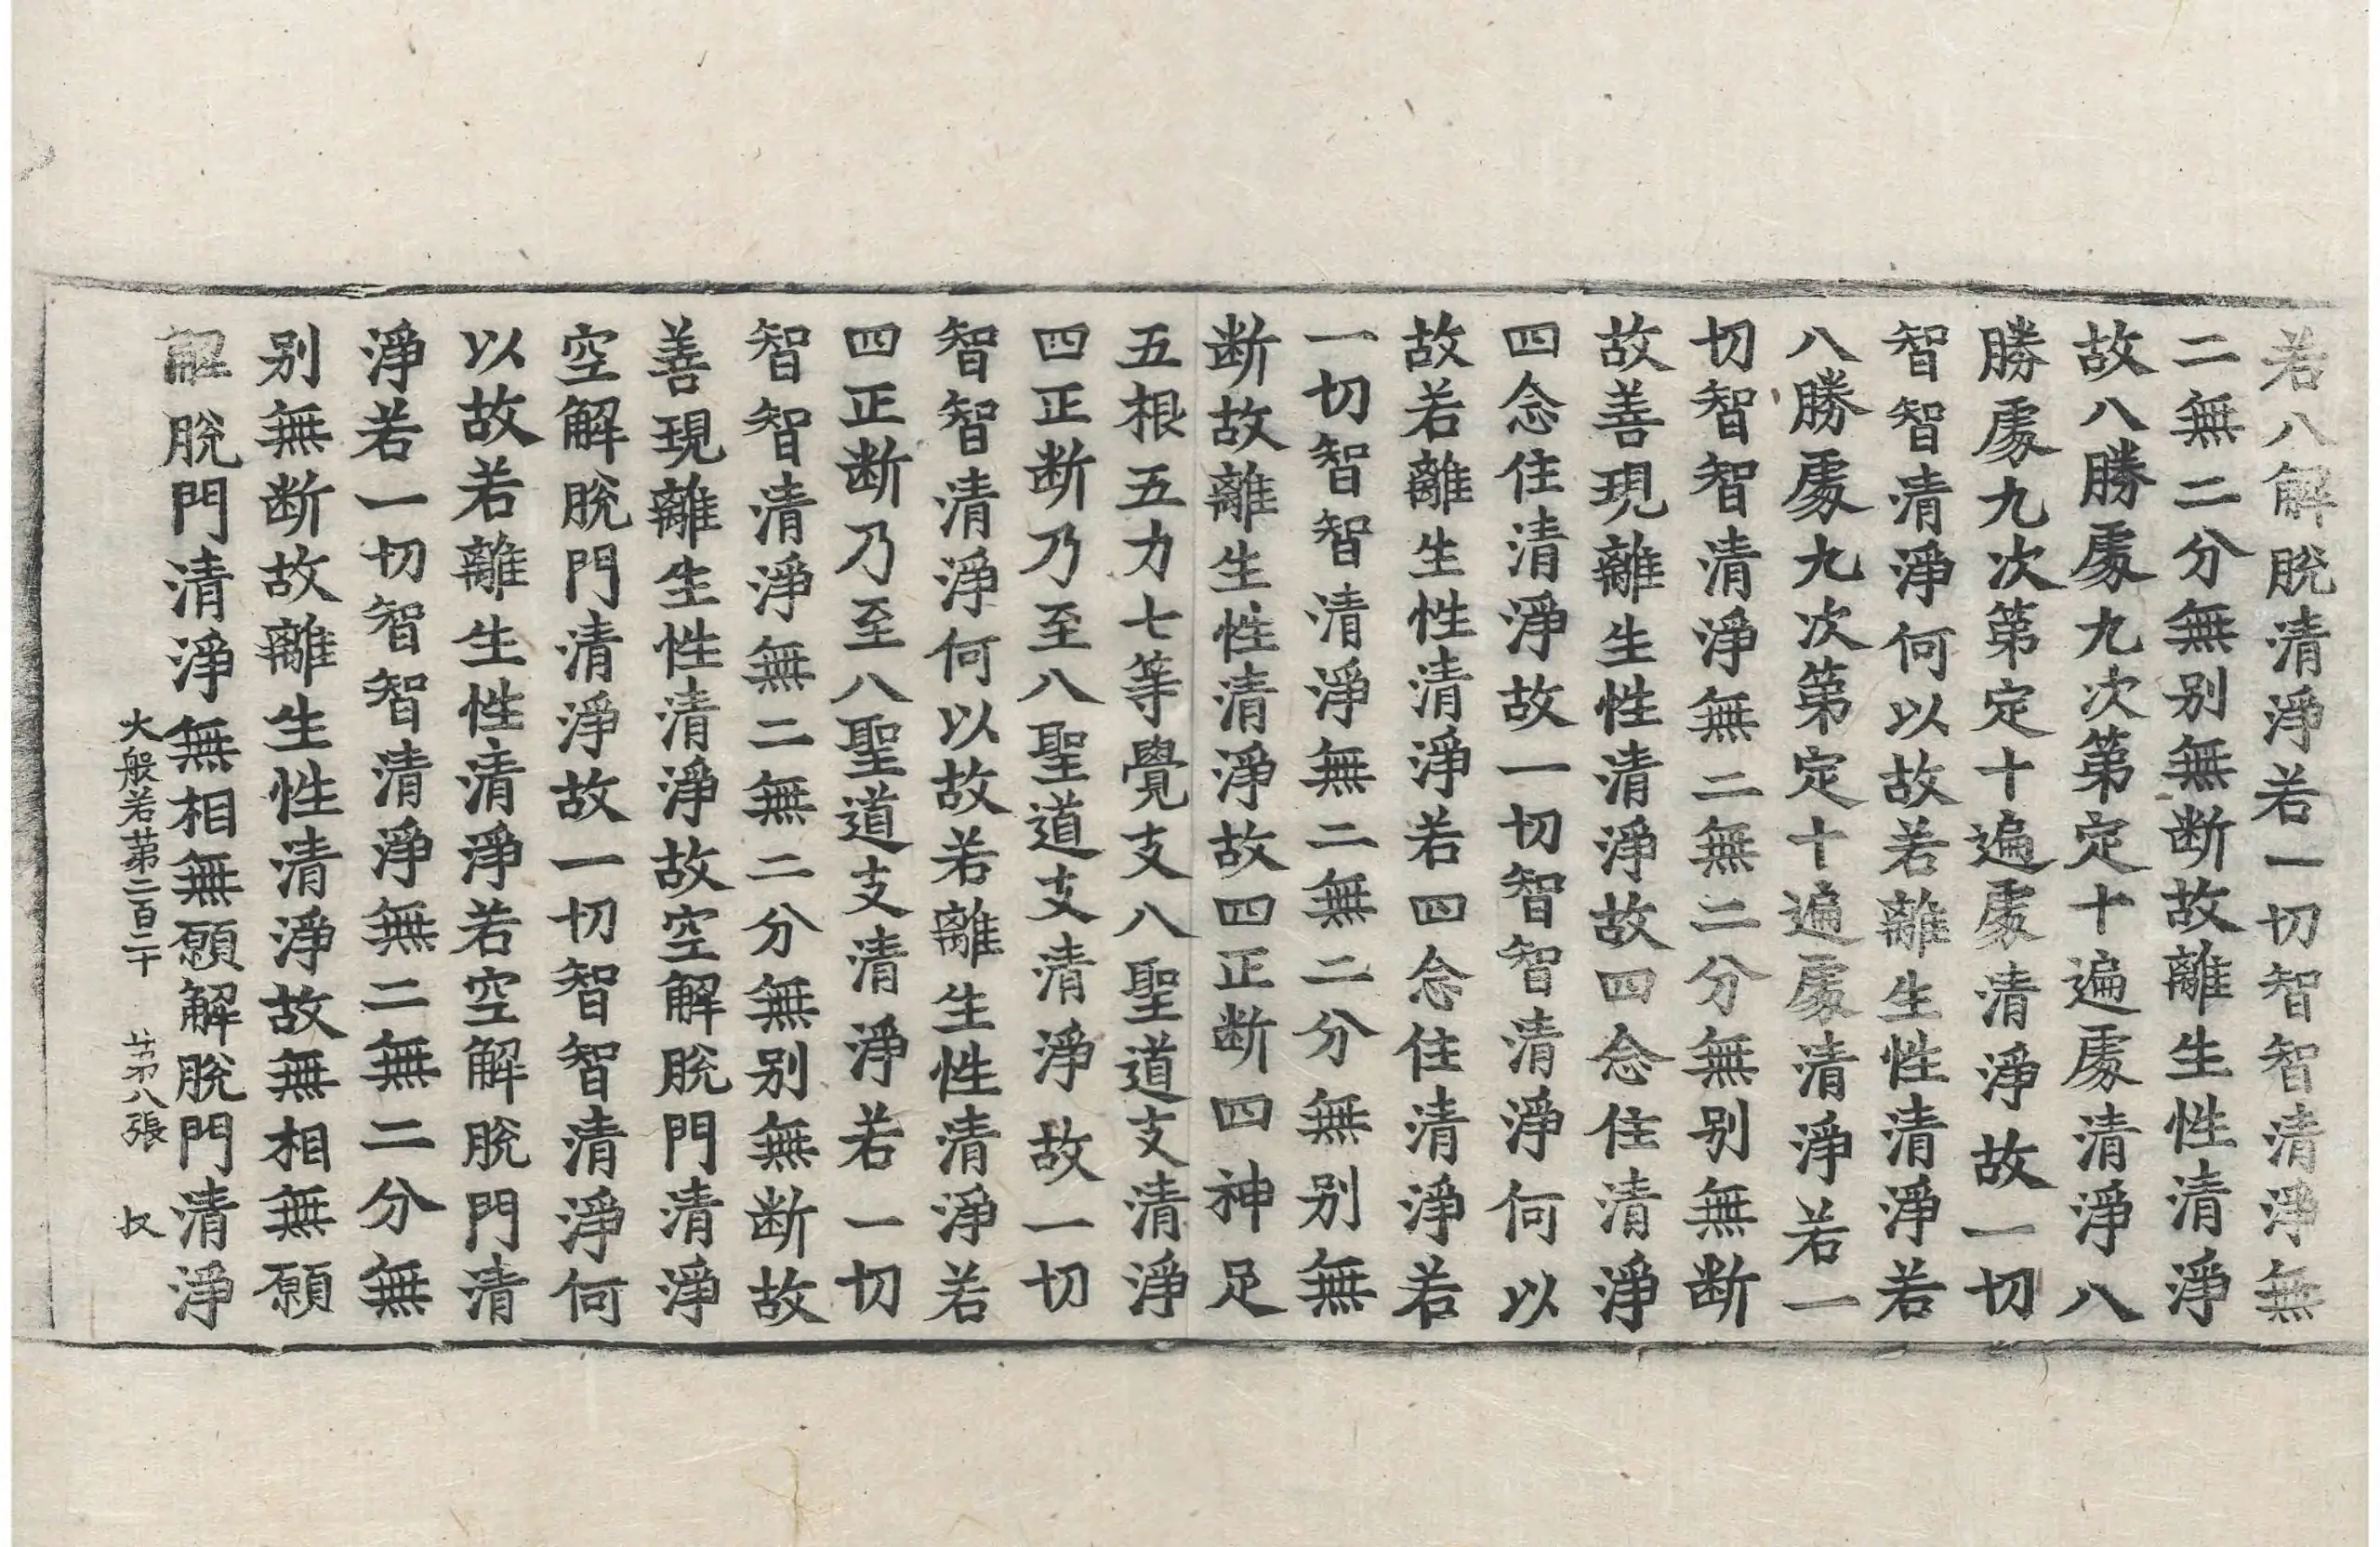 若八解脫清淨若一切智智清淨無
二無二分無别無断故離生性清淨
故八勝處九次第定十遍處清淨八
勝處九次第定十遍處清淨故一切
智智清淨何以故若離生性清淨若
八勝處九次第定十遍處清淨若一
切智智清淨無二無二分無别無断
故善現離生性清淨故四念住清淨
四念住清淨故一切智智清淨何以
故若離生性清淨若四念住清淨若
一切智智清淨無二無二分無别無
断故離生性清淨故四正断四神足
五根五力七等覺支八聖道支清淨
四正断乃至八聖道支清淨故一切
智智清淨何以故若離生性清淨若
四正断乃至八聖道支清淨若一切
智智清淨無二無二分無别無断故
善現離生性清淨故空解脫門清淨
空解脫門清淨故一切智智清淨何
以故若離生性清淨若空解脫門清
淨若一切智智清淨無二無二分無
别無断故離生性清淨故無相無願
解脫門清淨無相無願解脫門清淨
大般若第二百二十 第八張